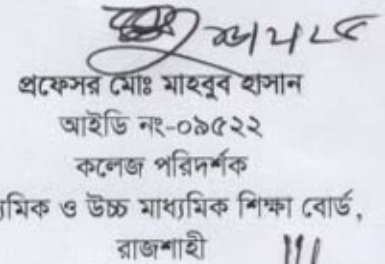 প্রফেসর মোঃ মাহবুব হাসান
আইডি নং-০৯৫২২
কলেজ পরিদর্শক
ও উচ্চ মাধ্যমিক শিক্ষা বোর্ড,
রাজশাহী